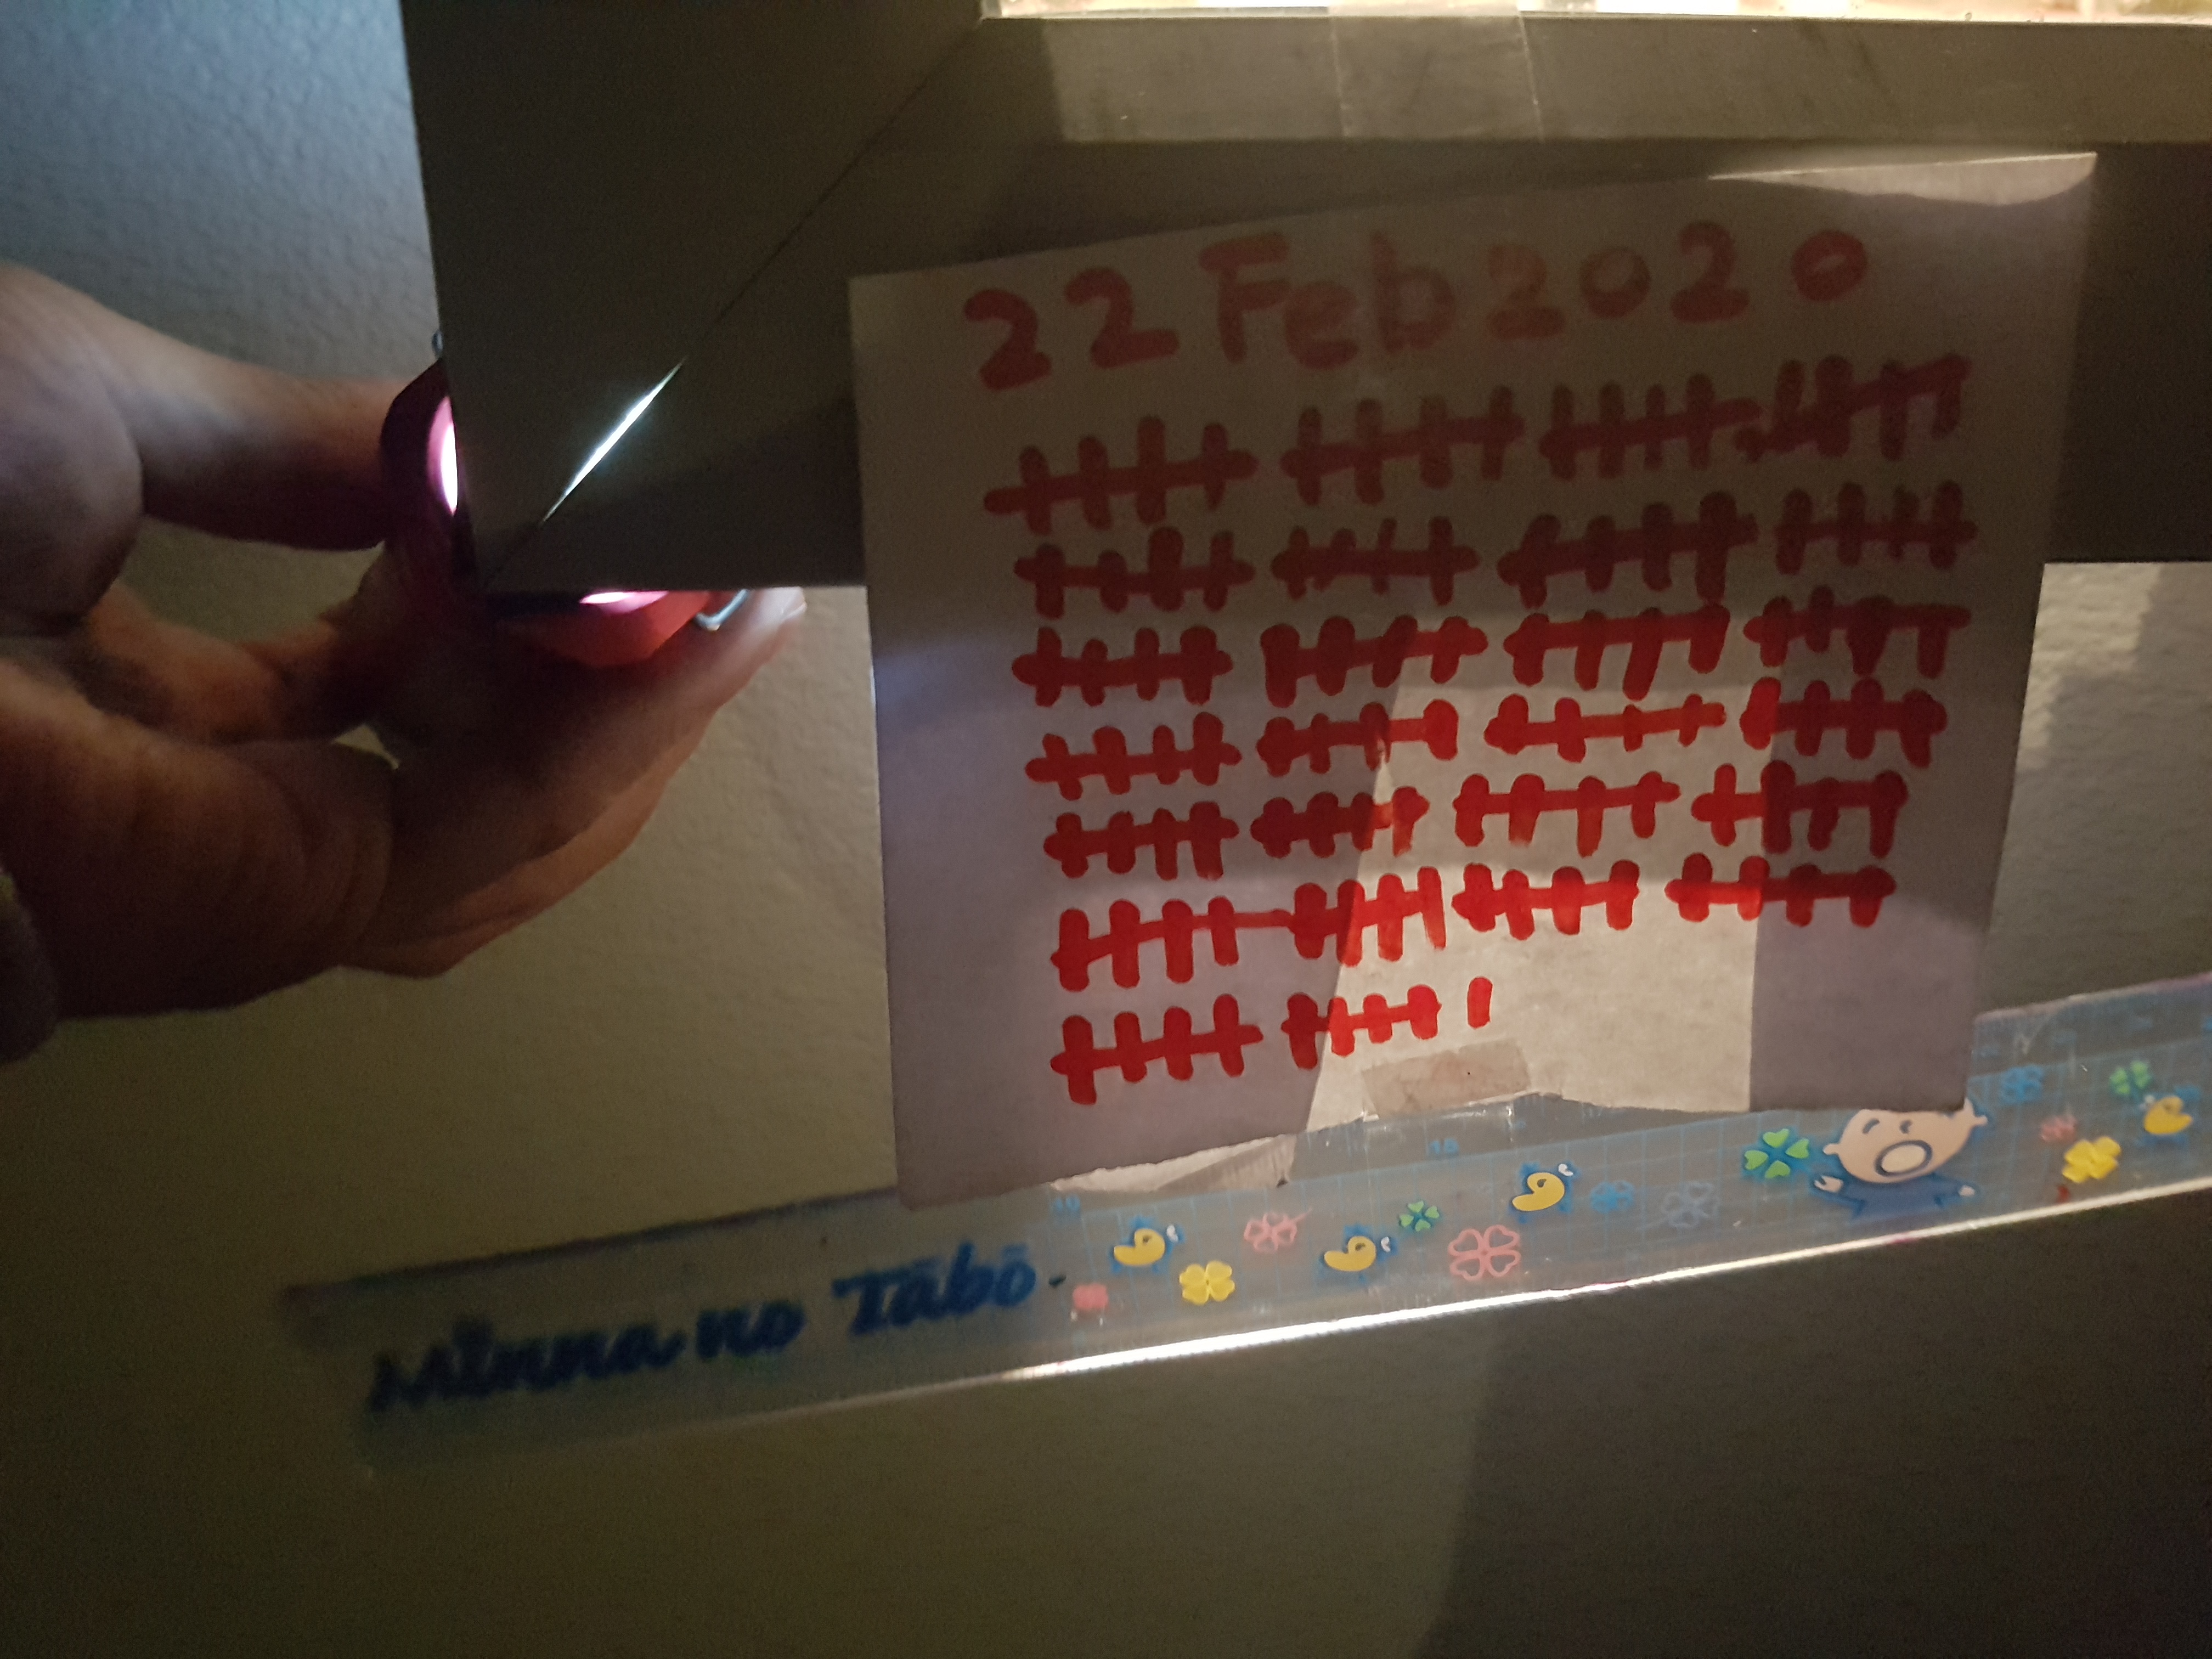 22 Feb 2020
Minna no Tābō.